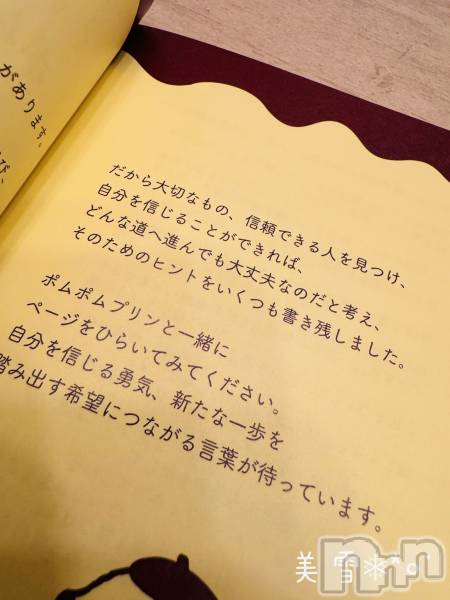 があります。
び、
だから大切なもの、信頼できる人を見つけ、
自分を信じることができれば、
どんな道へ進んでも大丈夫なのだと考え、
そのためのヒントをいくつも書き残しました。
ポムポムプリンと一緒に
ページをひらいてみてください。
自分を信じる勇気、新たな一歩を
踏み出す希望につながる言葉が待っています。
美雪❄*.o゜
nnn